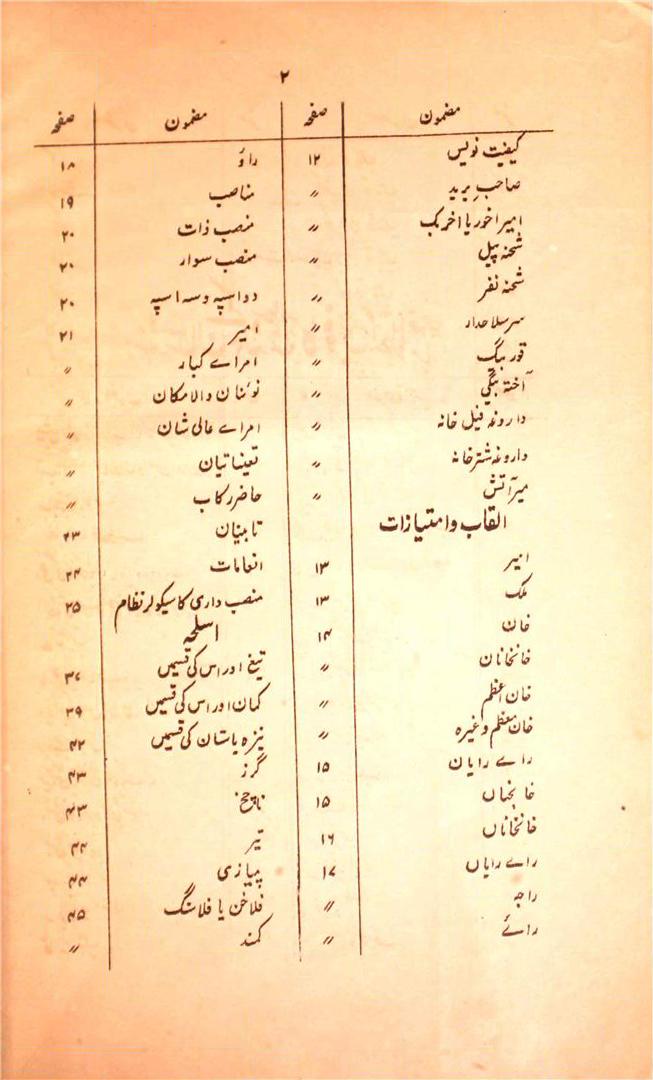 ۲
مضمون صفحہ
کیفیت نویس ۱۲
صاحبِ برید "
امیر اخور یا اخر بک "
شحنہ پیل "
شحنہ نفر "
سر سلاحدار "
قور بیگ "
آختہ بیگی "
داروغہ فیل خانہ "
داروغہ شتر خانہ "
میر آتش "
القاب و امتیازات
امیر ۱۳
ملک ۱۳
خان ۱۴
خانخانان "
خان اعظم "
خان معظم وغیرہ "
راے رایان ۱۵
خانجہاں ۱۵
خانخاناں ۱۶
راے رایاں ۱۷
راجہ "
رائے "
مضمون صفحہ
راؤ ۱۸
مناصب ۱۹
منصب ذات ۲۰
منصب سوار ۲۰
دو اسپہ و سہ اسپہ ۲۰
امیر ۲۱
امراے کبار "
نوئنان والا مکان "
امراے عالی شان "
تعیناتیان "
حاضر رکاب "
تابینان ۲۳
انعامات ۲۴
منصب داری کا سیکولر نظام ۲۵
اسلحہ
تیغ اور اس کی قسمیں ۳۷
کمان اور اس کی قسمیں ۳۹
نیزہ یا سنان کی قسمیں ۴۲
گرز ۴۳
ناچخ ۴۳
تیر ۴۴
پیازی ۴۴
فلاخن یا فلاسنگ ۴۵
کمند "